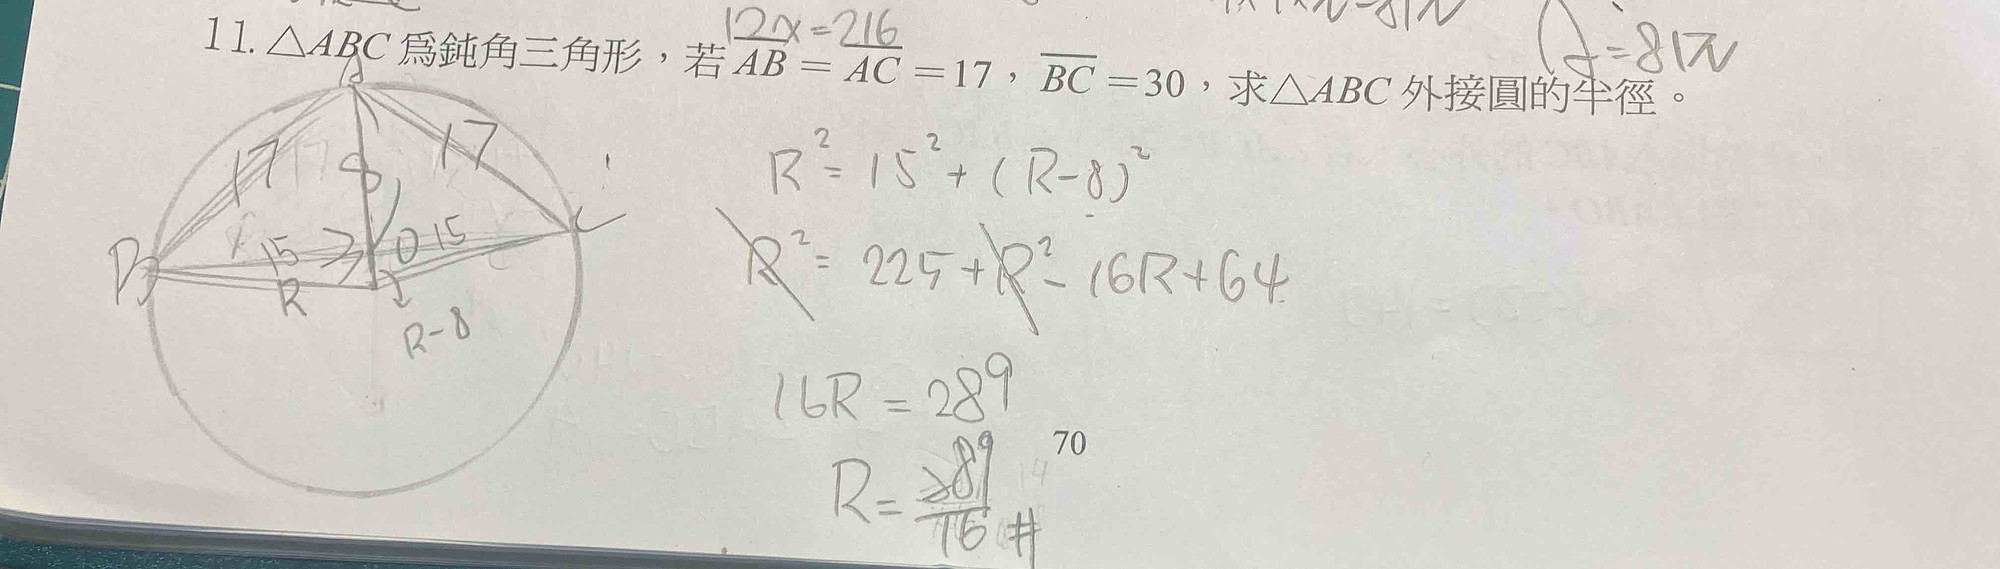 12x=216
11. △ABC 為鈍角三角形，若 AB = AC =17，BC =30，求△ABC 外接圓的半徑。
=81π
A
17 8 17
B 15 15 C
R
R-8
R²=15²+(R-8)²
R²=225+R²-16R+64
16R=289
R=289/16 #
70